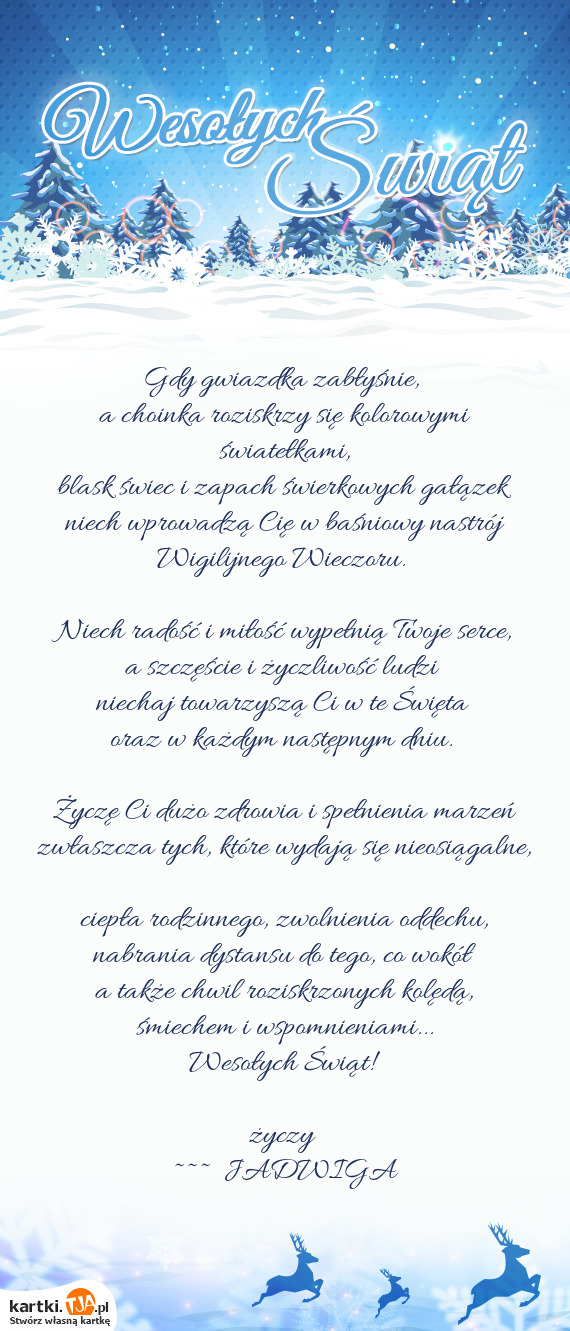 Wesołych
Świąt
Gdy gwiazdka zabłyśnie,
a choinka roziskrzy się kolorowymi
światełkami,
blask świec i zapach świerkowych gałązek
niech wprowadzą Cię w baśniowy nastrój
Wigilijnego Wieczoru.
Niech radość i miłość wypełnią Twoje serce,
a szczęście i życzliwość ludzi
niechaj towarzyszą Ci w te Święta
oraz w każdym następnym dniu.
Życzę Ci dużo zdrowia i spełnienia marzeń
zwłaszcza tych, które wydają się nieosiągalne,
ciepła rodzinnego, zwolnienia oddechu,
nabrania dystansu do tego, co wokół
a także chwil roziskrzonych kolędą,
śmiechem i wspomnieniami...
Wesołych Świąt!
życzy
~~~ JADWIGA
kartki.TJA.pl
Stwórz własną kartkę